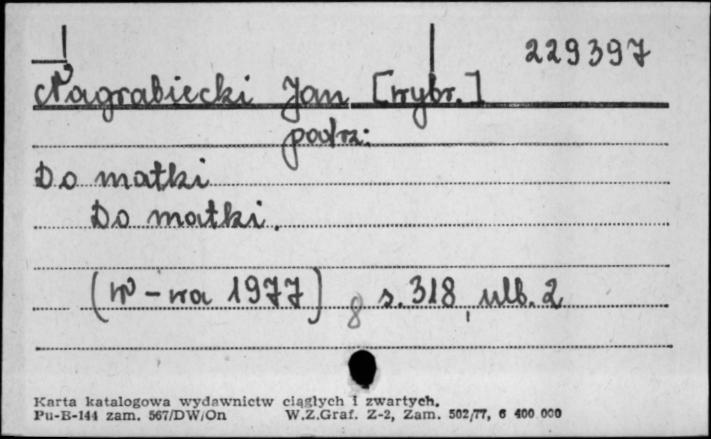 229397
Nagrabiecki Jan [wybr.]
patrz:
Do matki
Do matki.
(W-wa 1977) 8 s. 318, nlb. 2
Karta katalogowa wydawnictw ciągłych i zwartych.
Pu-B-144 zam. 567/DW/On W.Z.Graf. Z-2, Zam. 502/77, 6 400 000